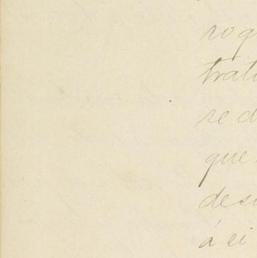 ro q
trat
re d
que
des
á ei